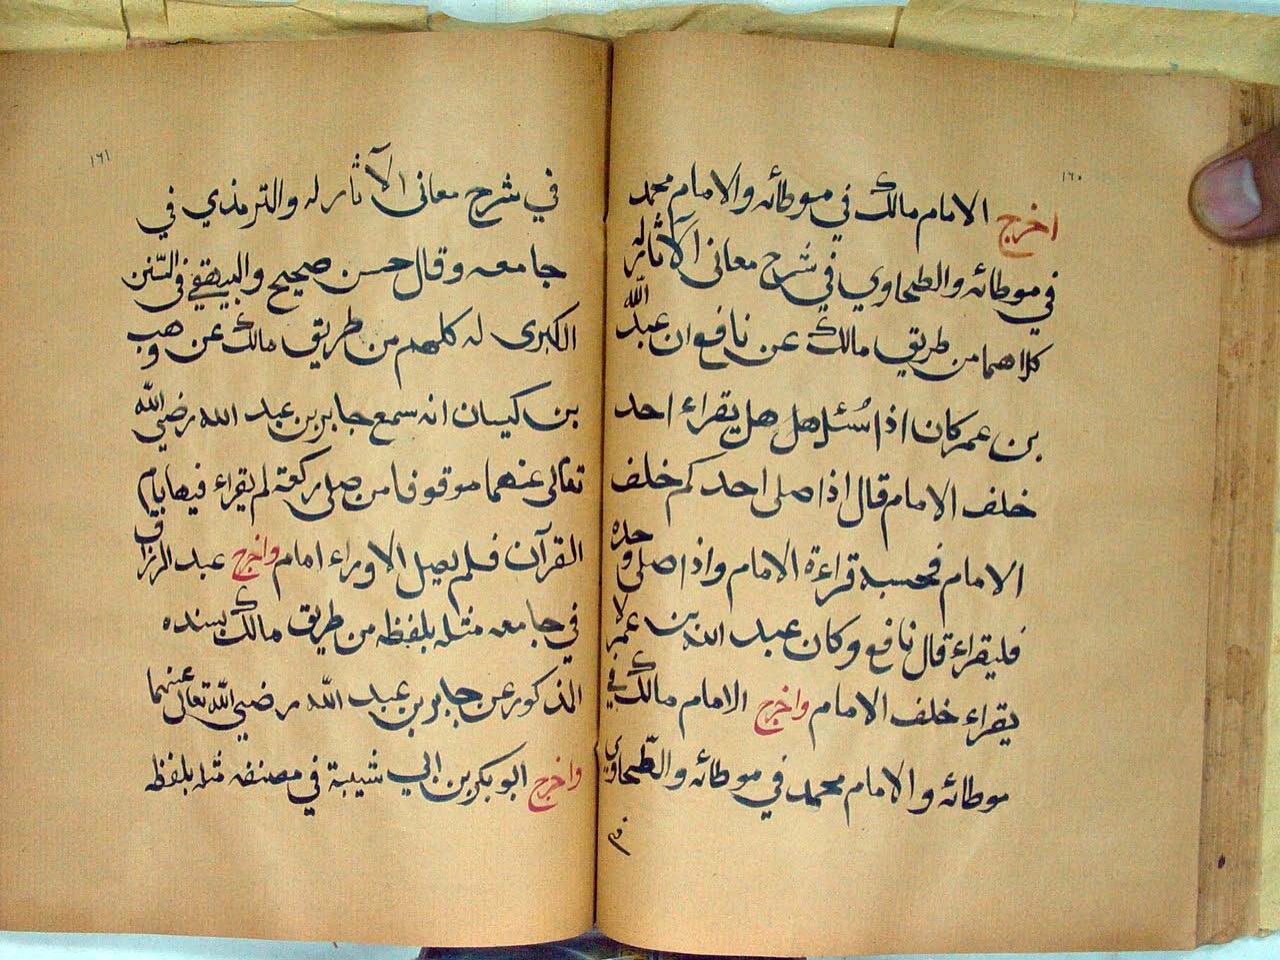 ١٦٠
اخرج الامام مالك في موطائه والامام محمد
في موطائه والطحاوي في شرح معانى الآثار له
كلاهما من طريق مالك عن نافع ان عبد الله
بن عمر كان اذا سُئل هل هل يقراء احد
خلف الامام قال اذا صلى احدكم خلف
الامام فحسبه قراءة الامام واذا صلى وحده
فليقراء قال نافع وكان عبد الله بن عمر لا
يقراء خلف الامام واخرج الامام مالك في
موطائه والامام محمد في موطائه والطّحاوي
في
١٦١
في شرح معانى الآثار له والترمذي في
جامعه وقال حسن صحيح والبيهقي في السّنن
الكبرى له كلهم من طريق مالك عن وهب
بن كيسان انه سمع جابر بن عبد الله رضي الله
تعالى عنهما موقوفا من صلى ركعة لم يقراء فيها بام
القرآن فلم يصل الا وراء امام واخرج عبد الرزاق
في جامعه مثله بلفظه من طريق مالك بسنده
المذكور عن جابر بن عبد الله رضي الله تعالى عنهما
واخرج ابو بكر بن ابي شيبة في مصنفه مثله بلفظه